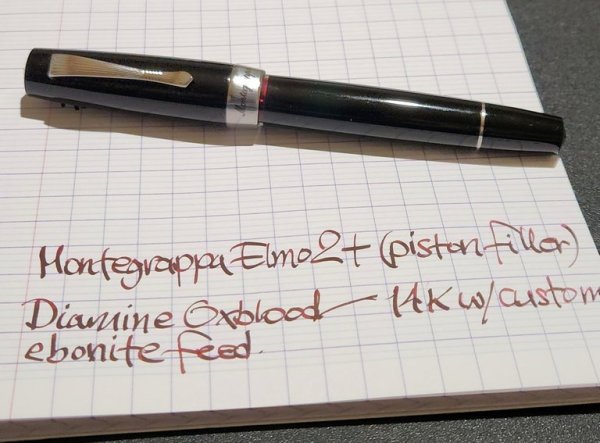 Montegrappa Elmo 2+ (piston filler)
Diamine Oxblood — 14K w/custom
ebonite feed.